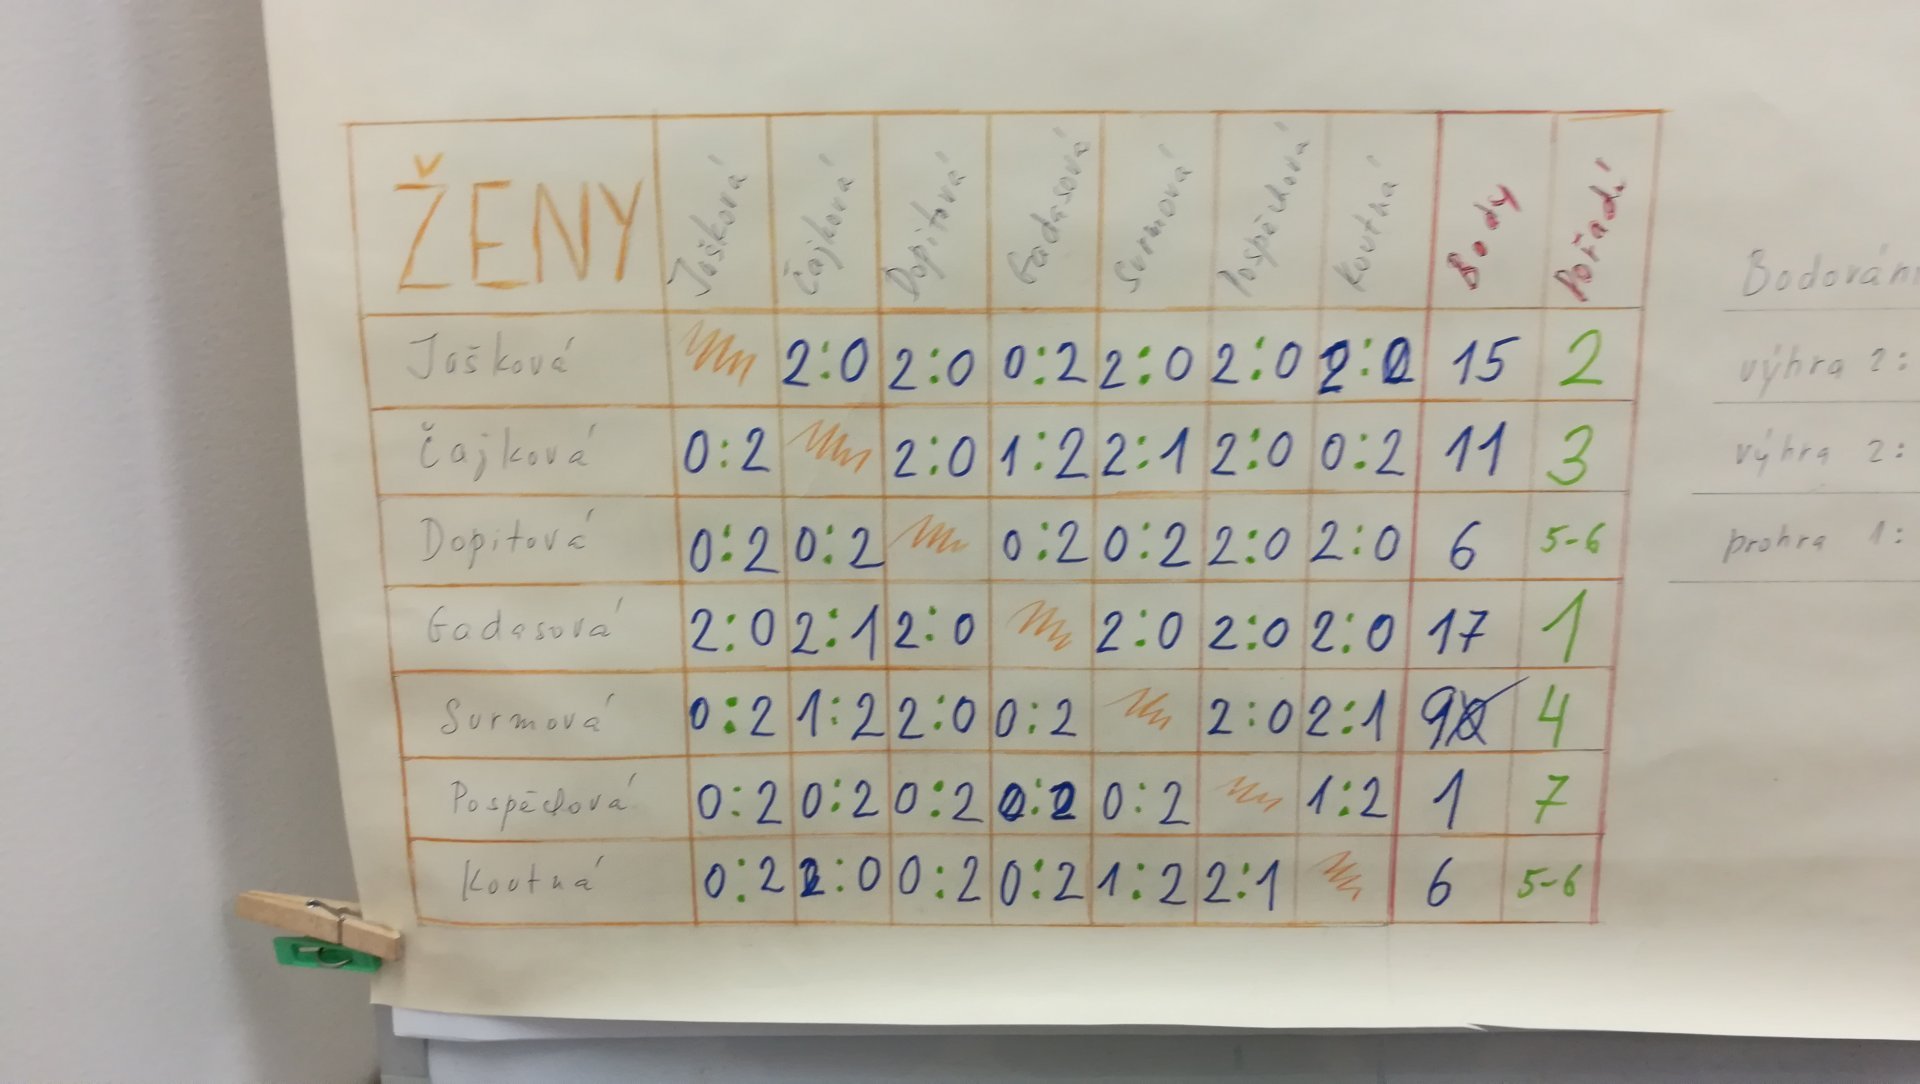 ŽENY Jašková Čajková Dopitová Gadasová Surmová Pospěchová Koutná Body Pořadí
Jašková 2:0 2:0 0:2 2:0 2:0 2:0 15 2
Čajková 0:2 2:0 1:2 2:1 2:0 0:2 11 3
Dopitová 0:2 0:2 0:2 0:2 2:0 2:0 6 5-6
Gadasová 2:0 2:1 2:0 2:0 2:0 2:0 17 1
Surmová 0:2 1:2 2:0 0:2 2:0 2:1 9 4
Pospěchová 0:2 0:2 0:2 0:2 0:2 1:2 1 7
Koutná 0:2 2:0 0:2 0:2 1:2 2:1 6 5-6
Bodován
výhra 2:
výhra 2:
prohra 1: